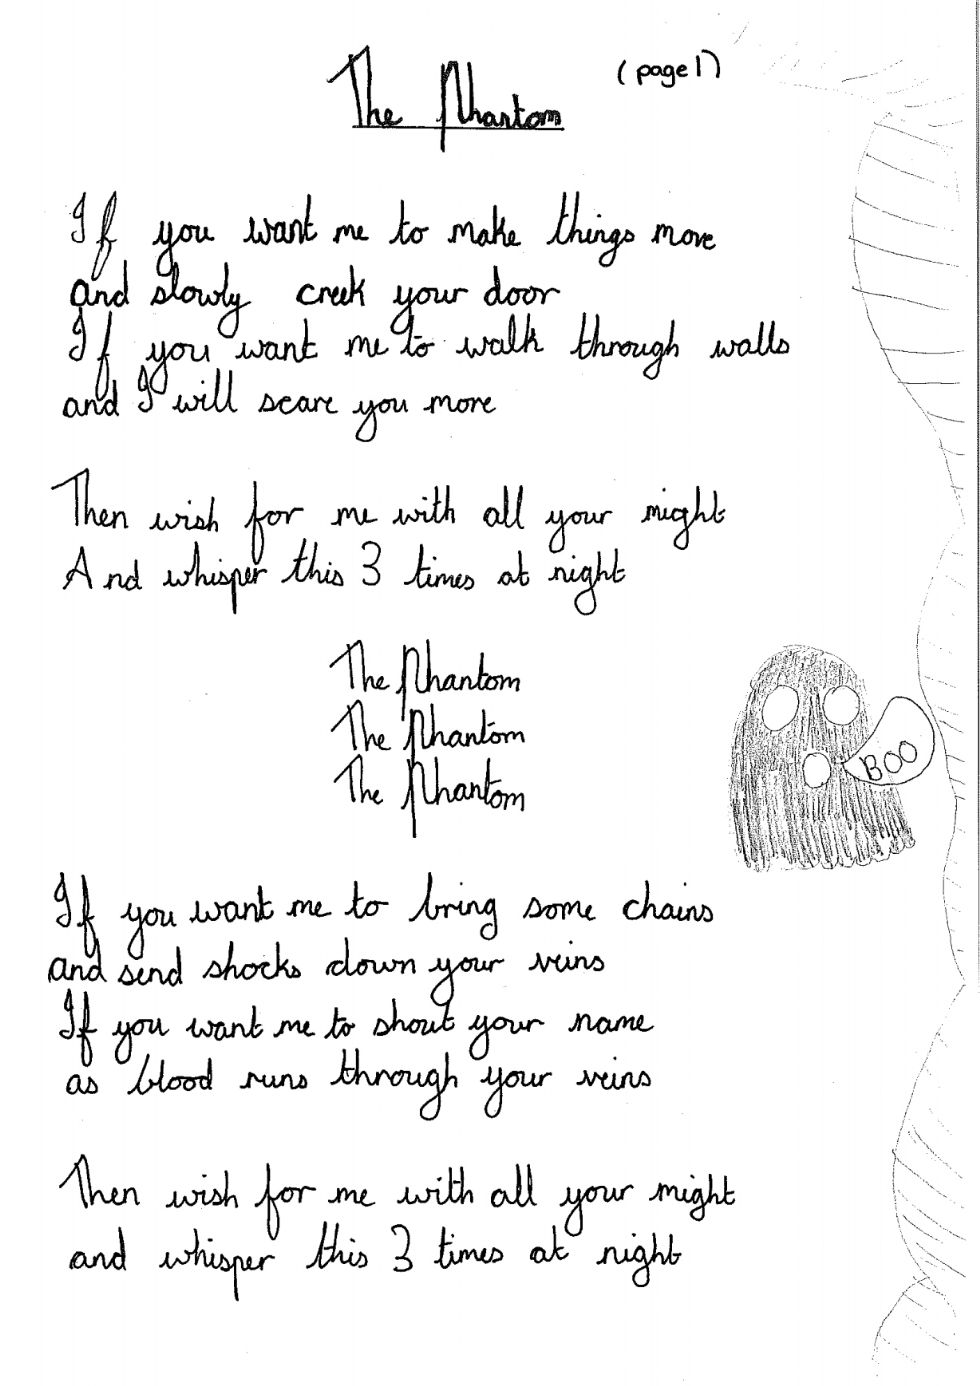 The Phantom
(page 1)
If you want me to make things move
and slowly creek your door
If you want me to walk through walls
and I will scare you more
Then wish for me with all your might
And whisper this 3 times at night
The Phantom
The Phantom
The Phantom
BOO
If you want me to bring some chains
and send shocks down your veins
If you want me to shout your name
as blood runs through your veins
Then wish for me with all your might
and whisper this 3 times at night